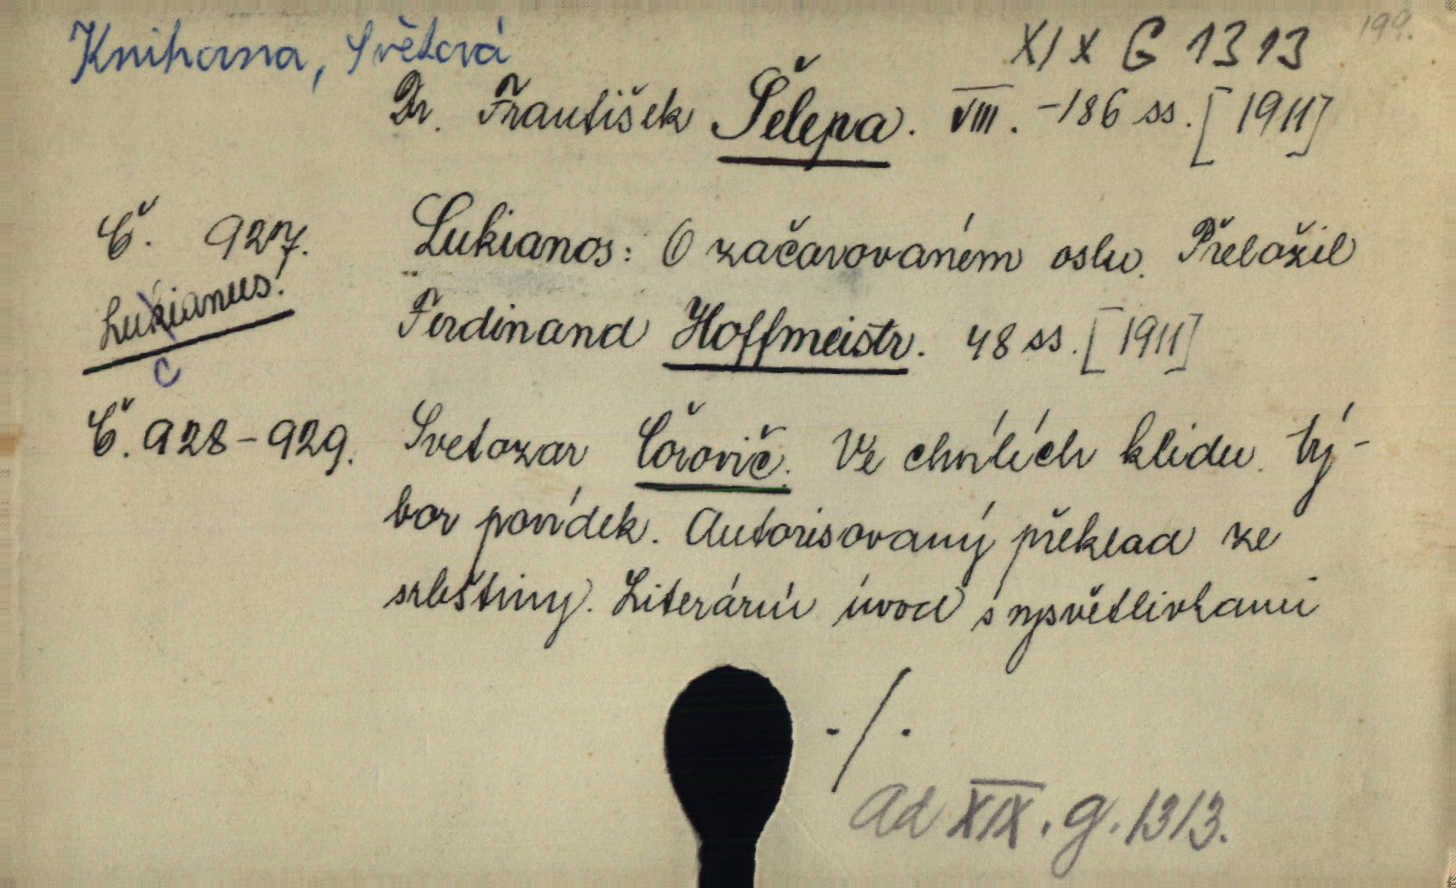 Knihovna, Světová
XIX G 1313
199.
Dr. František Šelepa. VIII. -186 ss. [1911]
Č. 927. Lukianos: O začarovaném oslu. Přeložil
Lukianus!
c
Ferdinand Hoffmeistr. 48 ss. [1911]
Č. 928-929. Svetozar Čorovič. Ve chvílích klidu. Vý-
bor povídek. Autorisovaný překlad ze
srbštiny. Literární úvod s vysvětlivkami
./.
ad XIX. g. 1313.